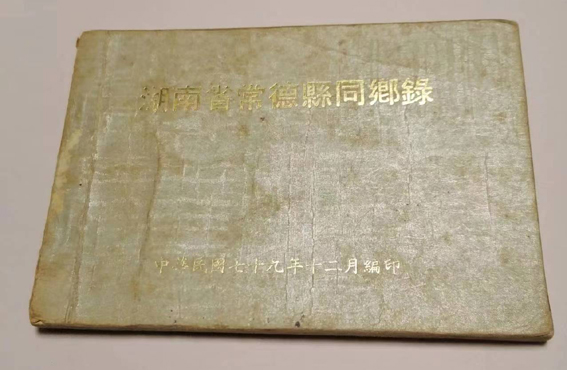 湖南省常德縣同鄉錄
中華民國七十九年十二月編印